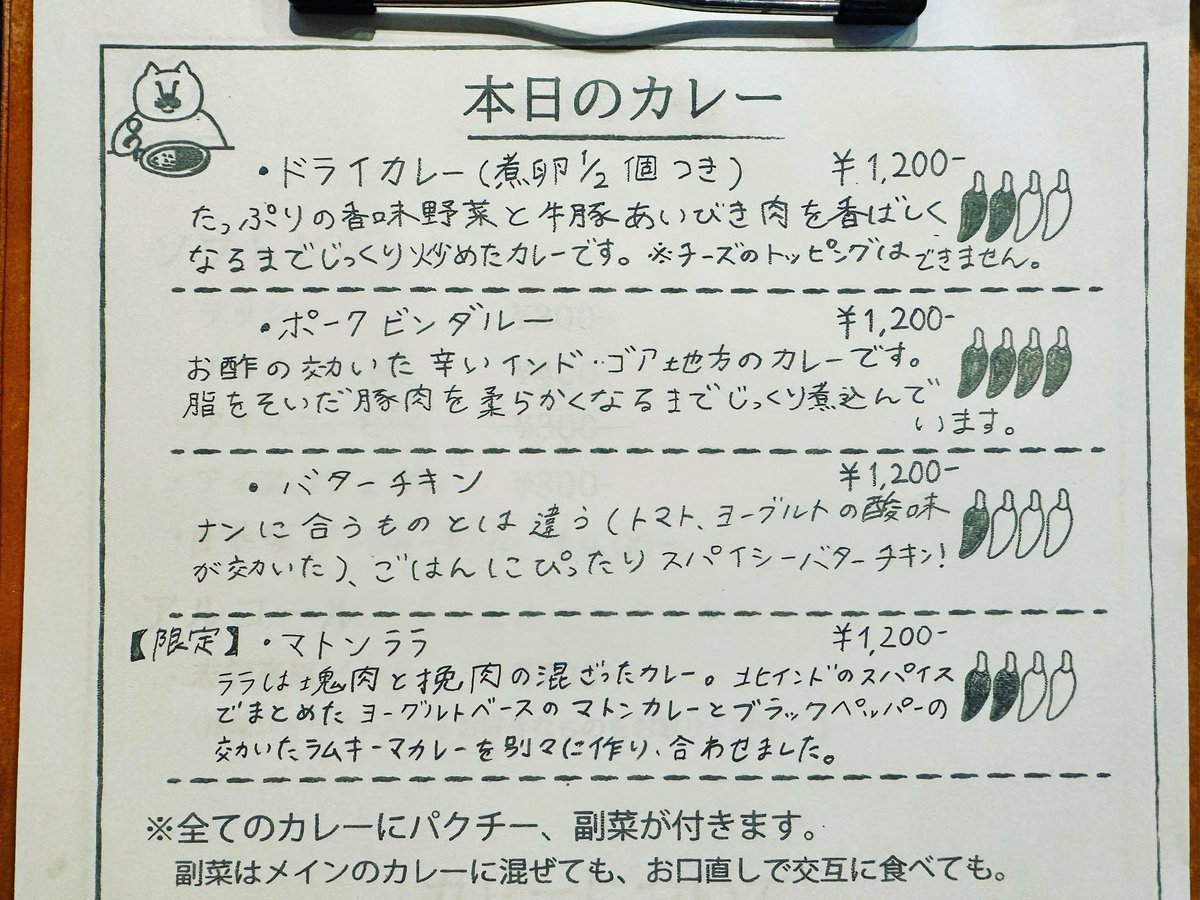 本日のカレー
・ドライカレー(煮卵1/2個つき) ¥1,200-
たっぷりの香味野菜と牛豚あいびき肉を香ばしく
なるまでじっくり炒めたカレーです。※チーズのトッピングはできません。
・ポークビンダルー ¥1,200-
お酢の効いた辛いインド・ゴア地方のカレーです。
脂をそいだ豚肉を柔らかくなるまでじっくり煮込んで
います。
・バターチキン ¥1,200-
ナンに合うものとは違う(トマト、ヨーグルトの酸味
が効いた)、ごはんにぴったりスパイシーバターチキン!
【限定】・マトンララ ¥1,200-
ララは塊肉と挽肉の混ざったカレー。北インドのスパイス
でまとめたヨーグルトベースのマトンカレーとブラックペッパーの
効いたラムキーマカレーを別々に作り、合わせました。
※全てのカレーにパクチー、副菜が付きます。
副菜はメインのカレーに混ぜても、お口直しで交互に食べても。